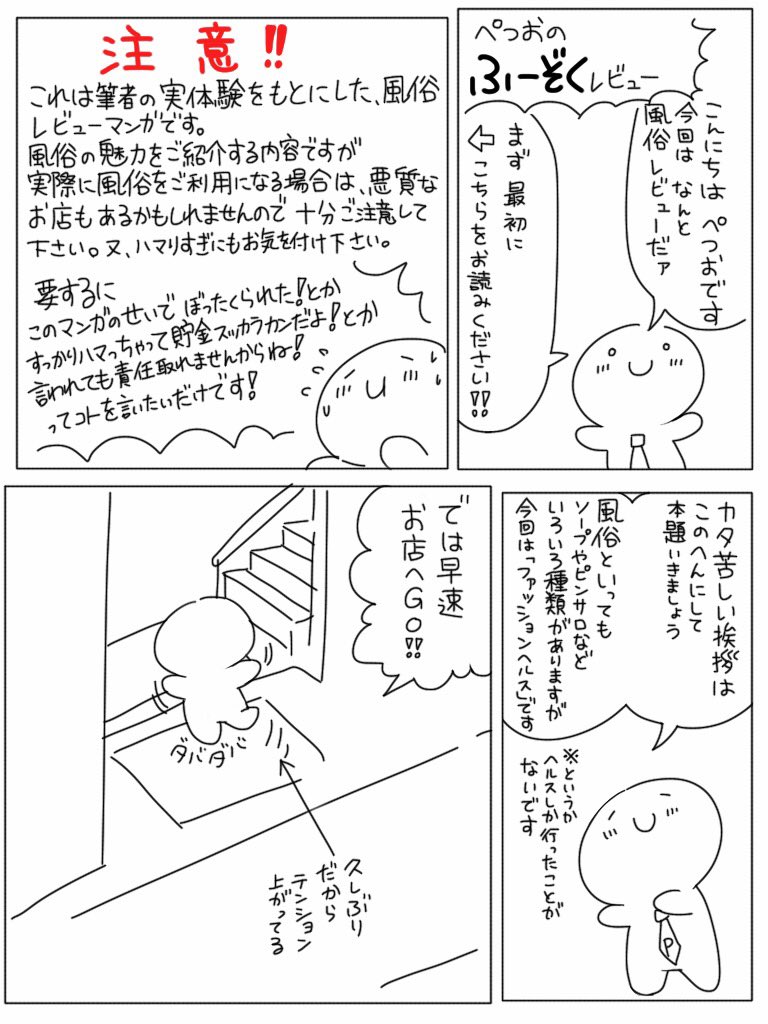 ぺつおの
ふーぞくレビュー
こんにちは ぺつおです
今回は なんと
風俗レビューだァ
まず 最初に
⇦こちらをお読みください!!
注意!!
これは筆者の実体験をもとにした、風俗
レビューマンガです。
風俗の魅力をご紹介する内容ですが
実際に風俗をご利用になる場合は、悪質な
お店もあるかもしれませんので 十分ご注意して
下さい。又、ハマりすぎにもお気を付け下さい。
要するに
このマンガのせいで ぼったくられた!とか
すっかりハマっちゃって貯金スッカラカンだよ!とか
言われても責任取れませんからね!
ってコトを言いたいだけです!
カタ苦しい挨拶は
このへんにして
本題いきましょう
風俗といっても
ソープやピンサロなど
いろいろ種類がありますが
今回は「ファッションヘルス」です
※というか
ヘルスしか行ったことが
ないです
P
では早速
お店へGO!!
ダバダバ
久しぶり
だから
テンション
上がってる